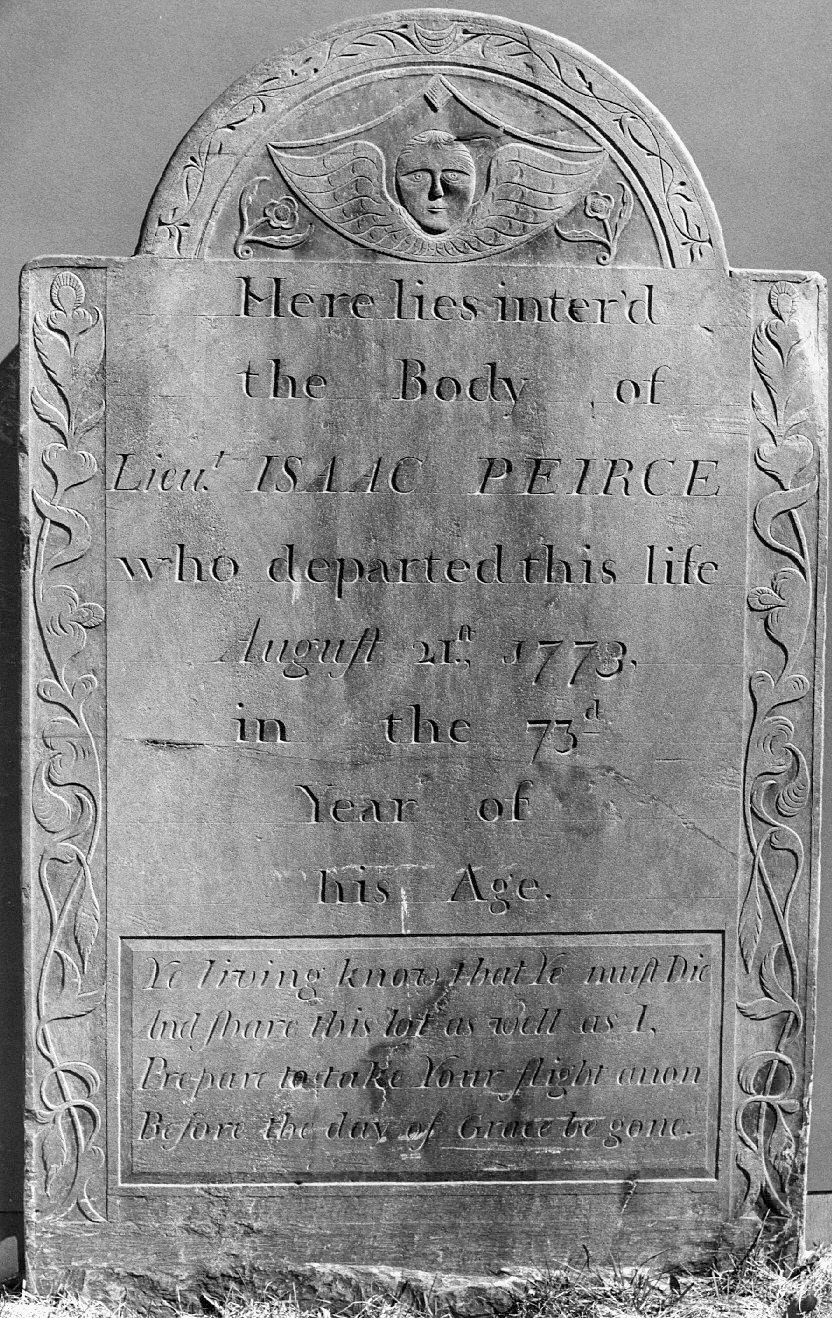 Here lies inter'd
the Body of
Lieu.ᵗ ISAAC PEIRCE
who departed this life
Auguſt 21.ſᵗ, 1773,
in the 73.ᵈ
Year of
his Age.
Ye living know that Ye muſt Die
And ſhare this lot as well as I,
Prepare to take Your flight anon
Before the day of Grace be gone.